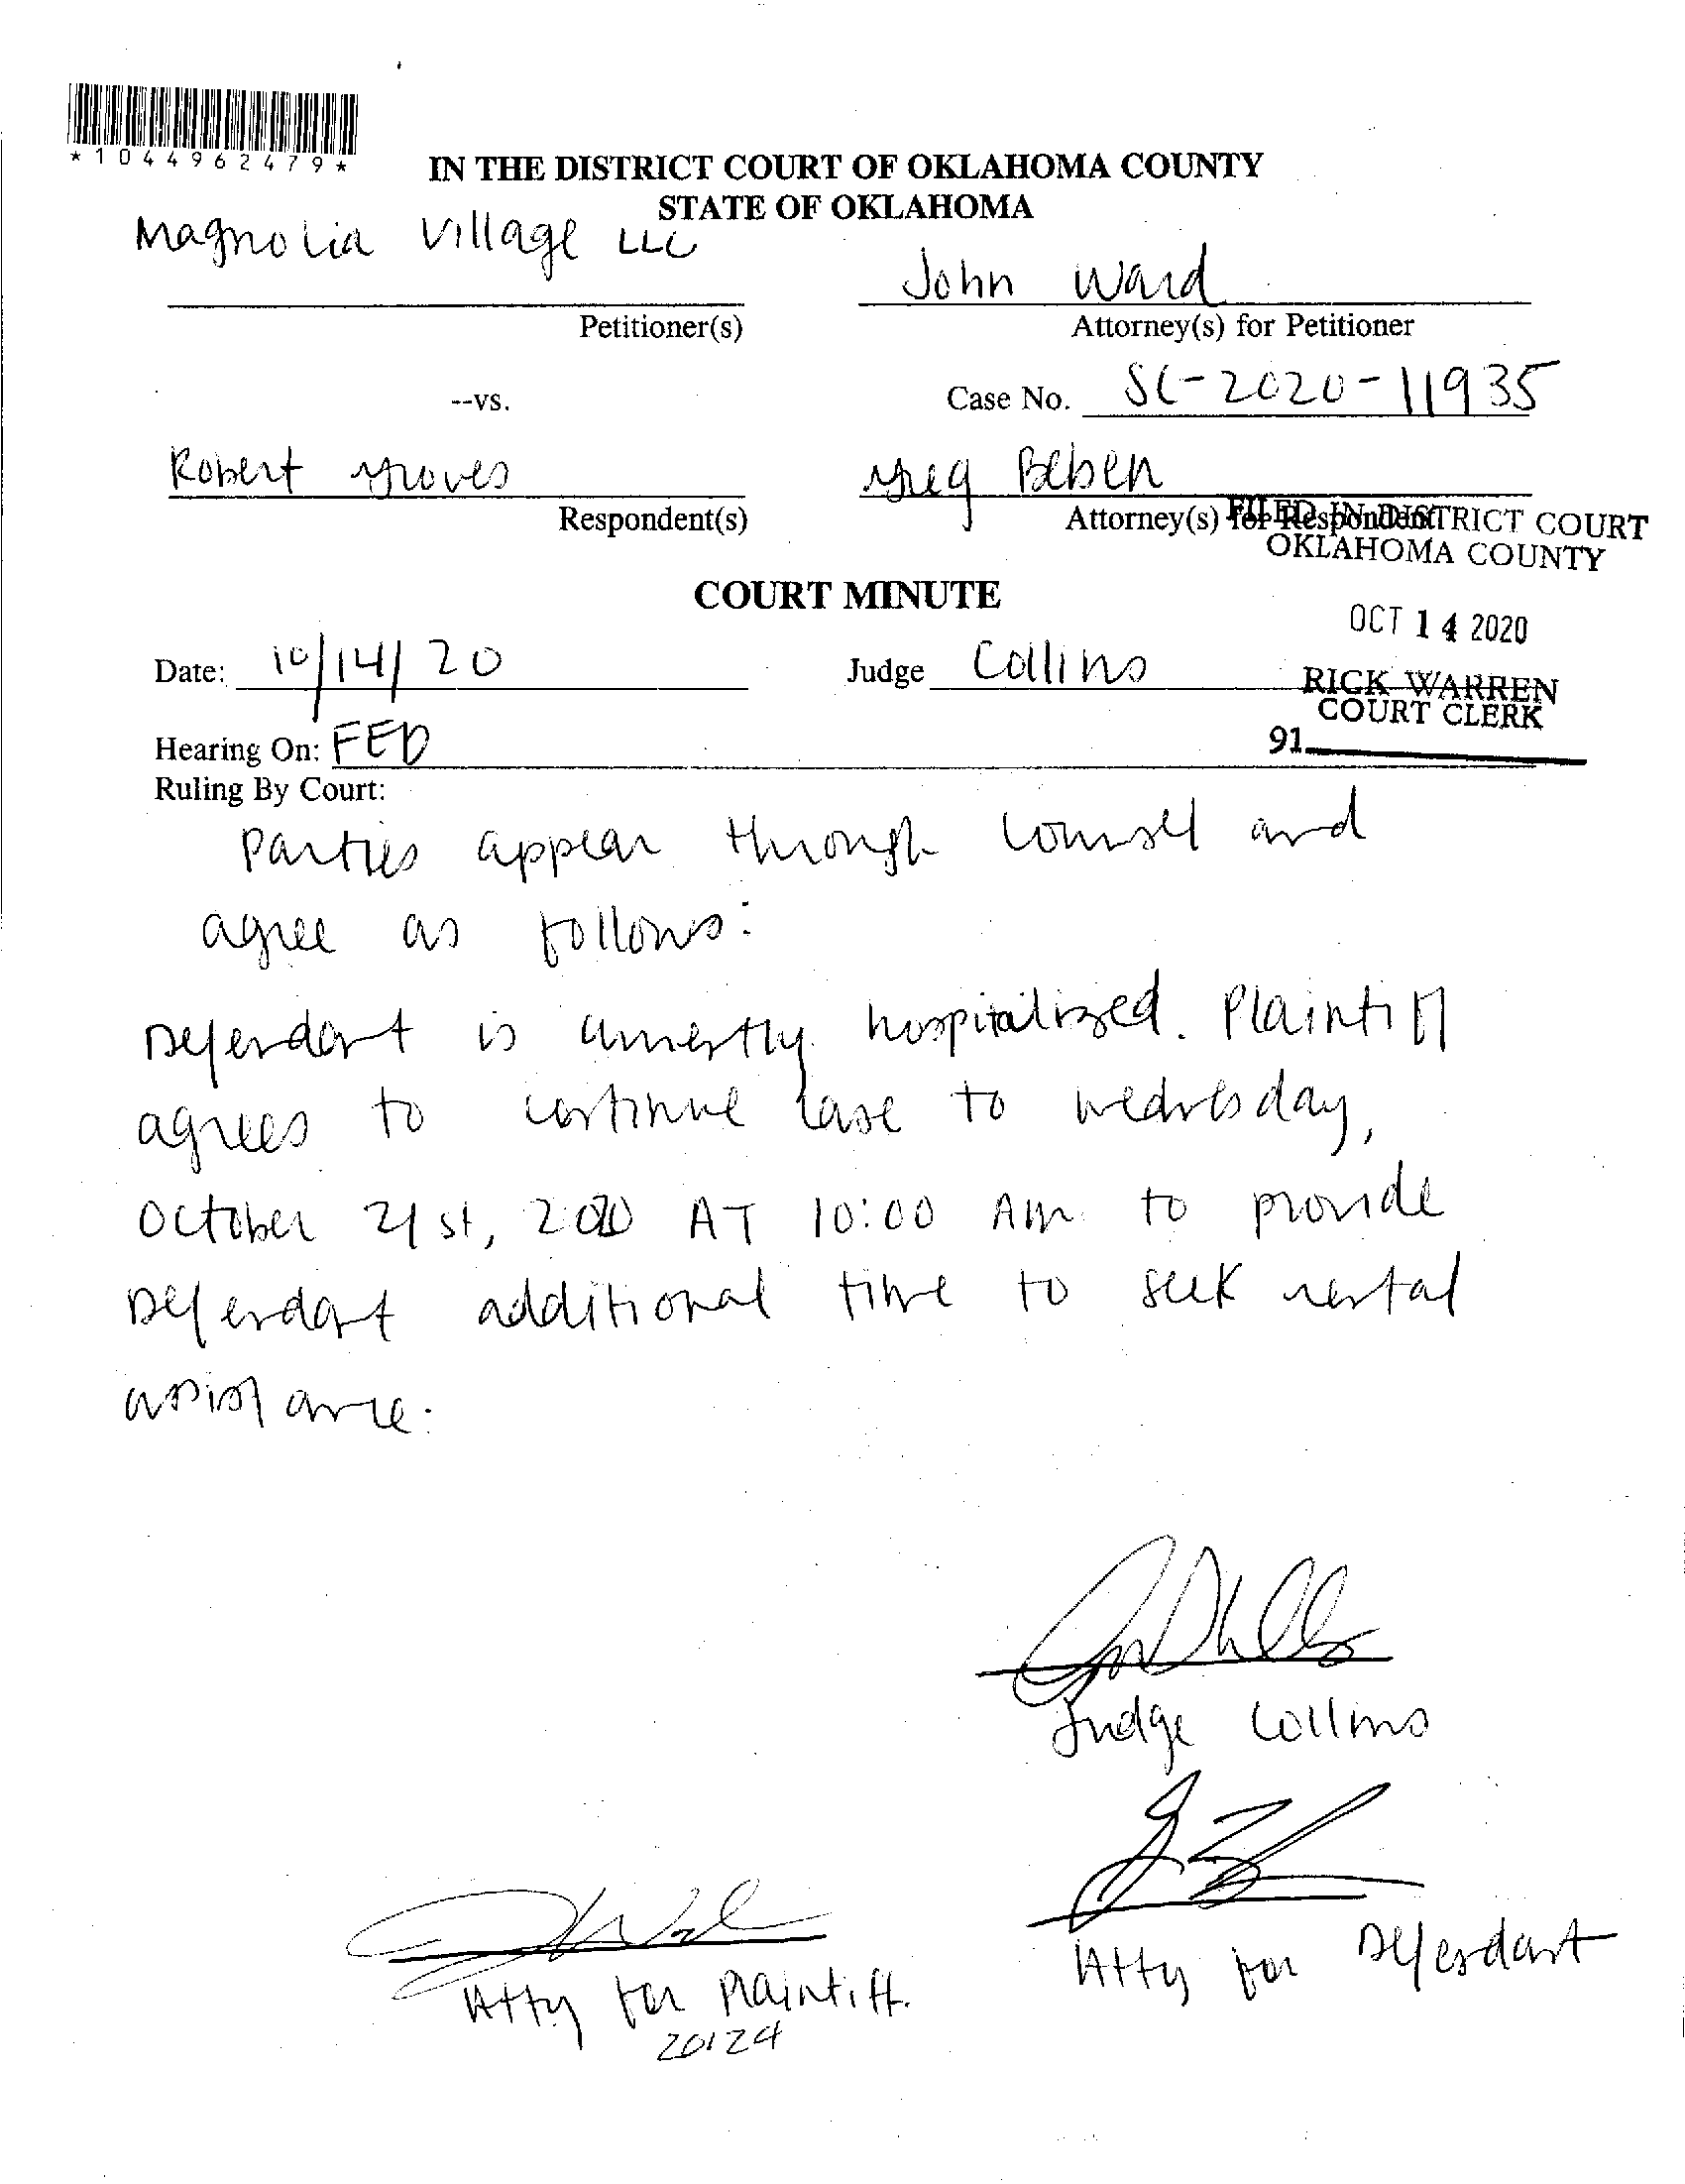 *1044962479*
IN THE DISTRICT COURT OF OKLAHOMA COUNTY
STATE OF OKLAHOMA
Magnolia Village LLC
Petitioner(s)
John Ward
Attorney(s) for Petitioner
--vs.
Case No. SC-2020-11935
Robert Groves
Respondent(s)
Greg Beben
Attorney(s) for Respondent
FILED IN DISTRICT COURT
OKLAHOMA COUNTY
COURT MINUTE
OCT 14 2020
Date: 10/14/20
Judge Collins
RICK WARREN
COURT CLERK
91
Hearing On: FED
Ruling By Court:
Parties appear through counsel and
agree as follows:
Defendant is currently hospitalized. Plaintiff
agrees to continue case to Wednesday,
October 21st, 2020 AT 10:00 AM to provide
Defendant additional time to seek rental
assistance.
Judge Collins
Atty for Defendant
Atty for Plaintiff.
20124